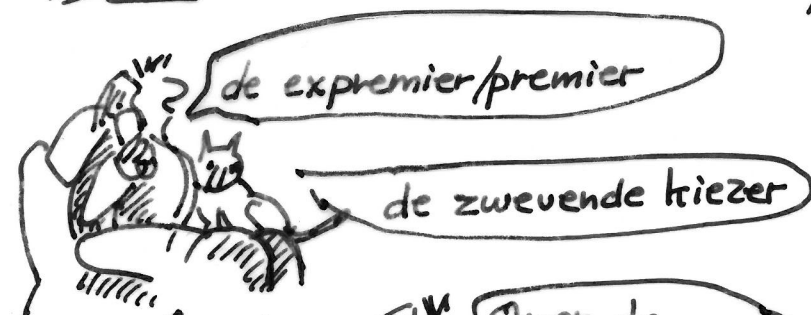 de expremier/premier
de zwevende kiezer